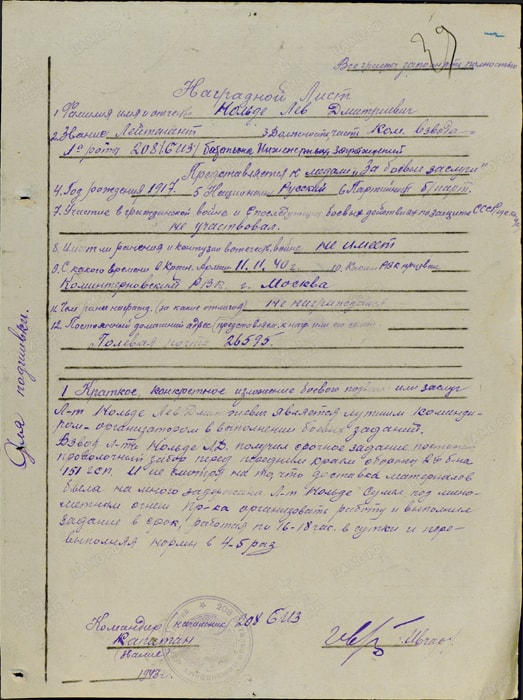 39
Все графы заполнять полностью
Наградной Лист
1. Фамилия имя и отчество Нольде Лев Дмитриевич
2. Звание Лейтенант 3 Должность часть Ком. взвода
1ой рота 208 (БИЗ) батальона Инженерных заграждений
Представляется к медали „За боевые заслуги"
4. Год рождения 1917. 5 Национ. Русский 6 Партийность б/парт.
7. Участие в гражданской войне и последующих боевых действиях по защите СССР
не участвовал.
8. Имеет ли ранения и контузии в отечеств. войне не имеет
9. С какого времени в Красн. Армии 11.11.40 г. 10. Каким РВК призван
Коминтерновский РВК г. Москва
11. Чем ранее награжд. (за какие отличия) не награждался
12. Постоянный домашний адрес
Полевая почта 26595.
Для подшивки.
1 Краткое, конкретное изложение боевого подвига или заслуг
Л-т Нольде Лев Дмитриевич является лучшим команди-
ром-организатором в выполнении боевых заданий.
Взвод л-та Нольде Л.Д. получил срочное задание поставить
проволочный забор перед передним краем обороны 2й б-на
151 гсп. И не смотря на то, что доставка материалов
была на много задержана л-т Нольде сумел под мино-
метным огнем пр-ка организовать работу и выполнил
задание в срок, работая по 16-18 час. в сутки и пере-
выполняя нормы в 4-5 раз
Командир (начальник) 208 БИЗ
Капитан
(звание)